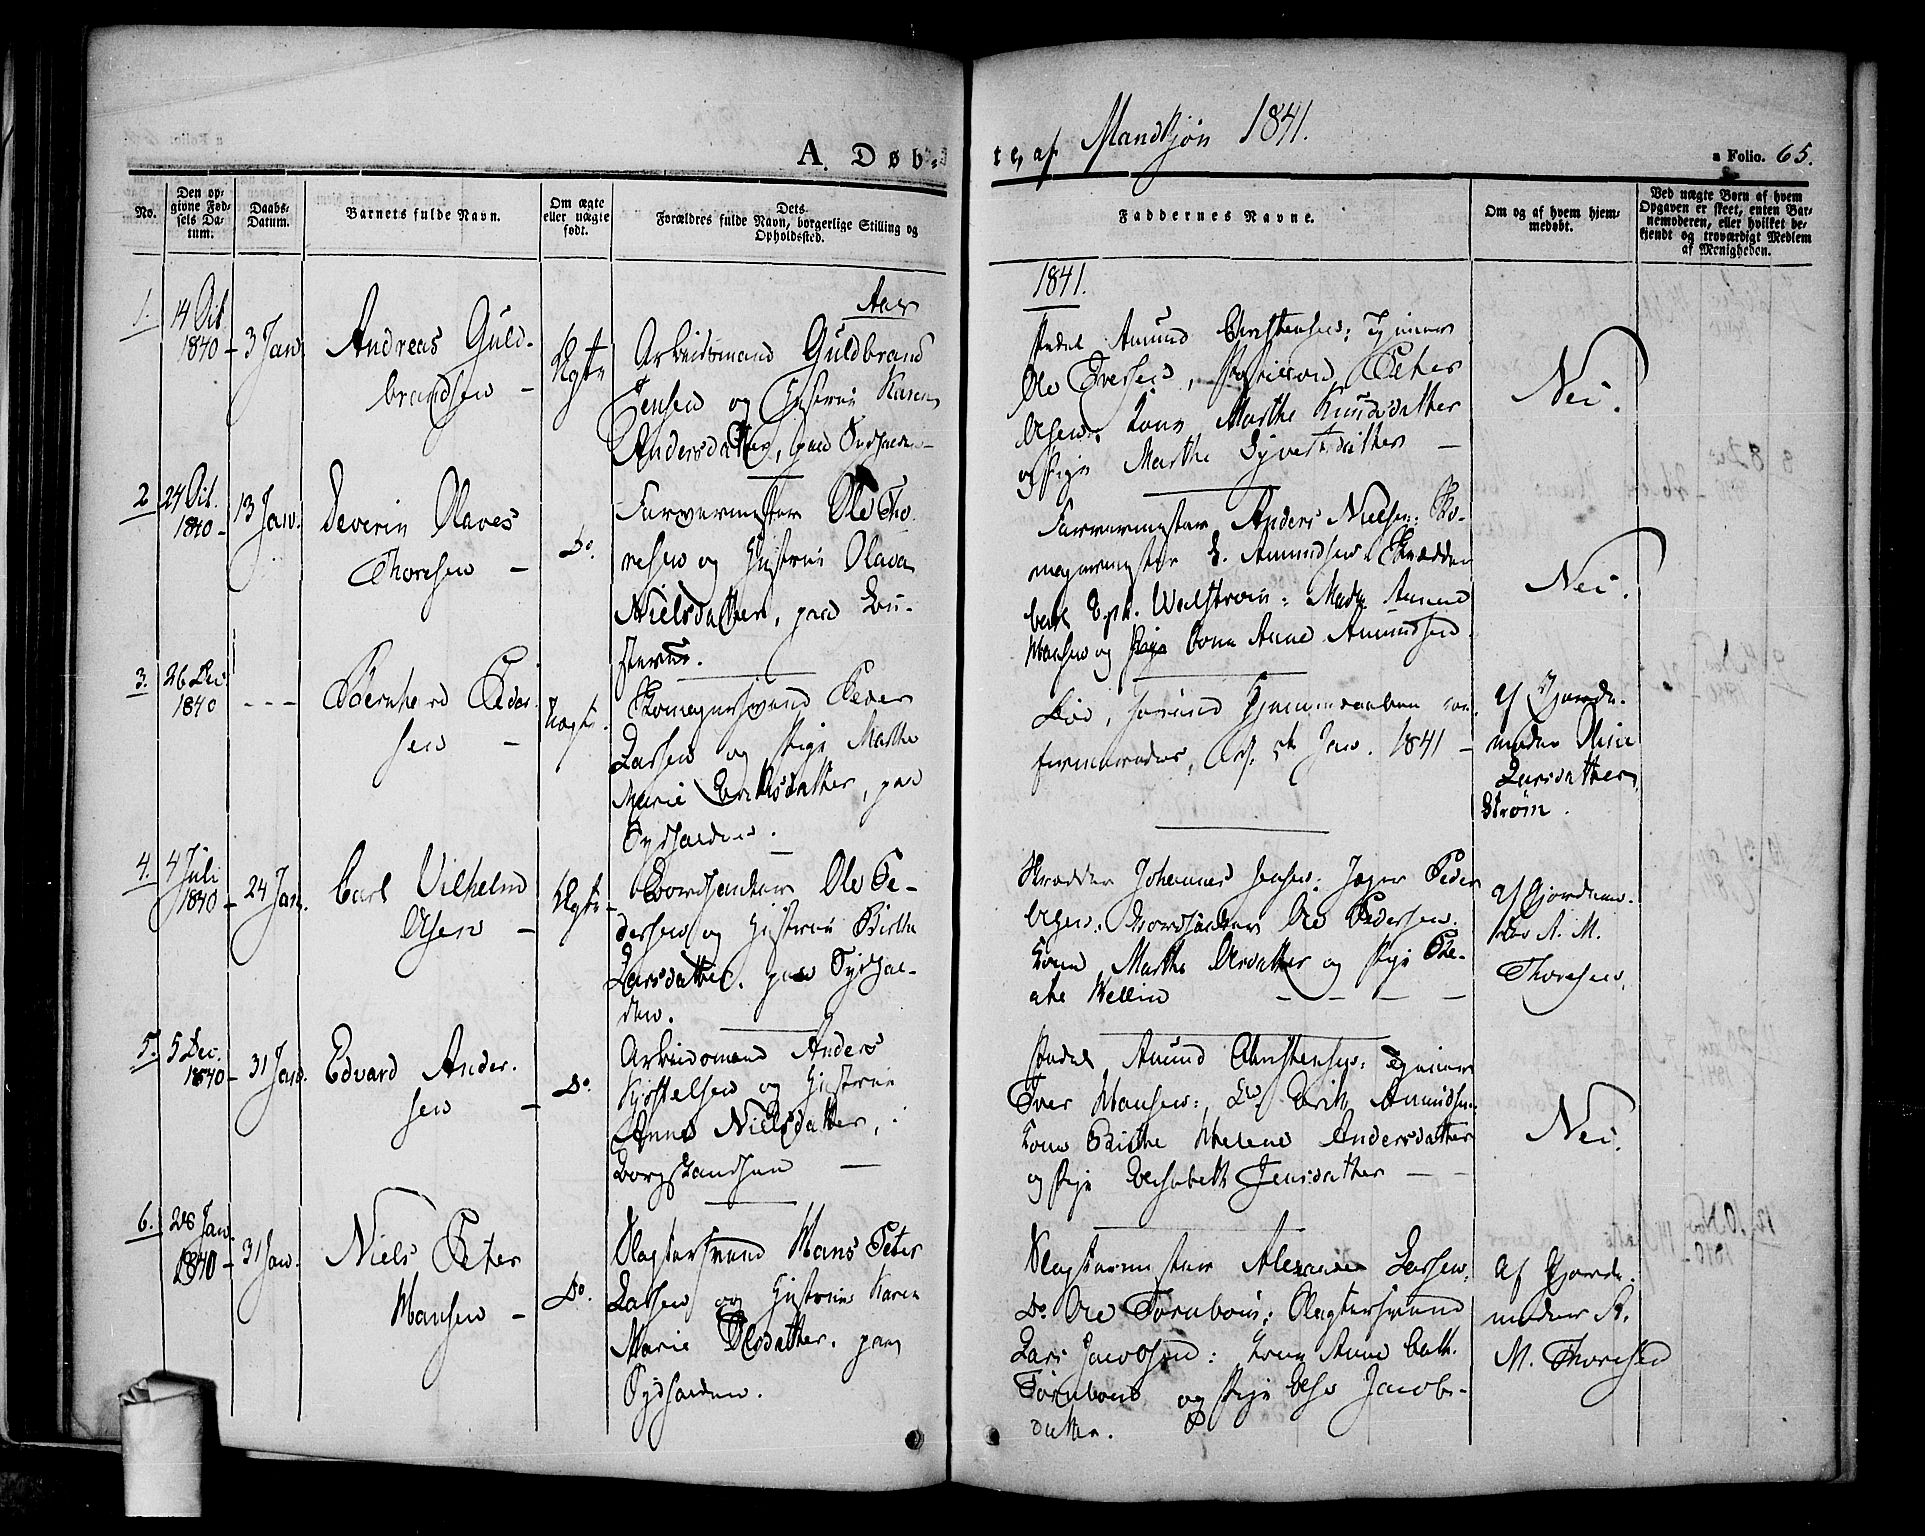 A. Døb-
te, af Mandkjøn 1841.
a Folio. 65.
No.
Den op-
givne Fød-
sels Da-
tum.
Daabs-
Datum.
Barnets fulde Navn.
Om ægte
eller uægte
født.
Dets
Forældres fulde Navn, borgerlige Stilling og
Opholdssted.
Faddernes Navne.
Om og af hvem hjem-
medøbt.
Ved uægte Børn af hvem
Opgaven er skeet, enten Bar-
nemoderen, eller hvilket be-
kjendt og troværdigt Medlem
af Menigheden.
Aar
1841.
1.
14 Oct.
1840
3 Jan.
Andreas Guld-
brandsen
Ægte
Arbeidsmand Guldbrand
Jensen og Hustrue Karen
Andersdatter, paa Sydsiden
Amund Christensen;
Ole Iversen, Peter
Olsen; Kone Marthe Knudsdatter
og Pige Marthe Syvertsdatter
Nei.
2
24 Oct.
1840
13 Jan.
Severin Olaves
Thoresen
Do.
Farvermester Ole Tho-
resen og Hustrue Olava
Nielsdatter, paa
Farvermester Anders Nielsen; Sko-
magermester E. Amundsen; Skrædder
Carl Wedstrøm;
Hansen og Pige Anne Amundsen
Nei.
3.
26 Dec
1840
Bernhard Peder-
sen
Uægte.
Skomagersvend Peder
Larsen og Pige Marthe
Marie Eriksdatter, paa
Sydsiden.
Død, forinden Hjemmedaaben con-
firmeredes, 5te Jan. 1841
af Gjorde-
moder
Larsdatter
Strøm.
4.
4 Juli
1840
24 Jan.
Carl Vilhelm
Olsen
Ægte
Ole Pe-
dersen og Hustrue Birthe
Larsdatter, paa Sydsi-
den.
Skrædder Johannes Jensen; Peder
Olsen; Ole Pedersen.
Kone Marthe Olsdatter og Pige
Wellin
af Gjordemo-
der A. M.
Thoresen.
5.
5 Dec.
1840
31 Jan.
Edvard Ander-
sen
Do.
Arbeidsmand Anders
Kjøstelsen og Hustrue
Anne Nielsdatter,
Amund Christensen;
Iver Hansen; Do. Erik Amundsen;
Kone Birthe Helene Andersdatter
og Pige Elisabeth Jensdatter
Nei.
6.
28 Jan.
1840
31 Jan.
Niels Peter
Hansen
Do.
Slagtersvend Hans Peter
Larsen og Hustrue Karen
Marie Olsdatter, paa
Sydsiden.
Slagtermester Alexander Larsen,
Do. Ole Tørnbom; Slagtersvend
Lars Jacobsen; Kone Anne Cath.
Tørnbom og Pige Else Jacobs-
datter.
af Gjorde-
moder A.
M. Thoresen